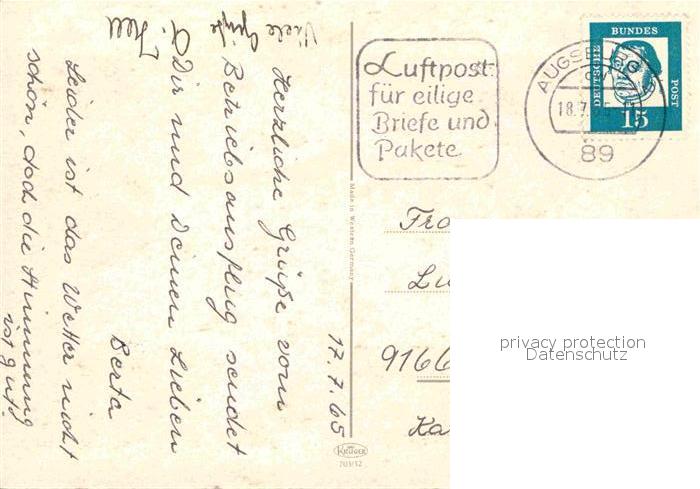 17.7.65
Herzliche Grüße vom
Betriebsausflug sendet
Dir und Deinen Lieben
Berta
Leider ist das Wetter nicht
schön, doch die Stimmung
ist gut!
Viele Grüße
Made in Western Germany
KRÜGER
703/12
Luftpost
für eilige
Briefe und
Pakete
AUGSBURG
18.7.65
89
DEUTSCHE
BUNDES
POST
15
Fra
Lu
9166
Ka
privacy protection
Datenschutz